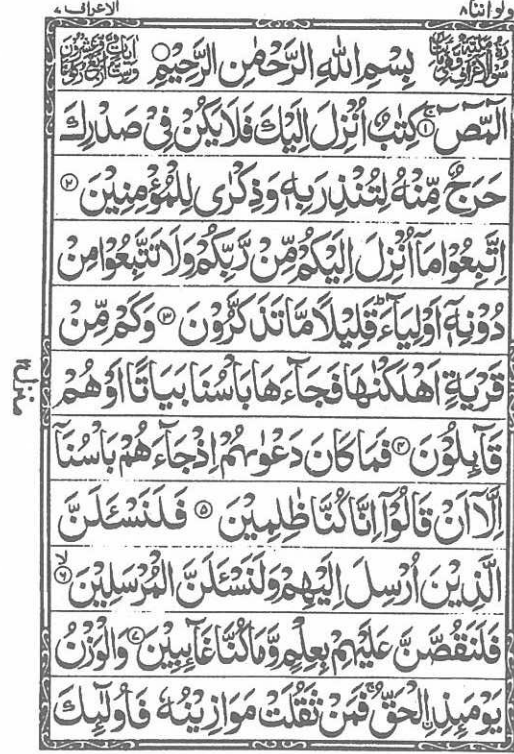 ولو اننا ۸
الاعراف ۷
بِسْمِ اللهِ الرَّحْمٰنِ الرَّحِيْمِ ○
الٓمّٓصٓ ۚ ① كِتٰبٌ اُنْزِلَ اِلَيْكَ فَلَا يَكُنْ فِيْ صَدْرِكَ
حَرَجٌ مِّنْهُ لِتُنْذِرَ بِهٖ وَذِكْرٰى لِلْمُؤْمِنِيْنَ ②
اِتَّبِعُوْا مَآ اُنْزِلَ اِلَيْكُمْ مِّنْ رَّبِّكُمْ وَلَا تَتَّبِعُوْا مِنْ
دُوْنِهٖٓ اَوْلِيَآءَ ؕ قَلِيْلًا مَّا تَذَكَّرُوْنَ ③ وَكَمْ مِّنْ
قَرْيَةٍ اَهْلَكْنٰهَا فَجَآءَهَا بَاْسُنَا بَيَاتًا اَوْ هُمْ
قَآىِٕلُوْنَ ④ فَمَا كَانَ دَعْوٰىهُمْ اِذْ جَآءَهُمْ بَاْسُنَآ
اِلَّآ اَنْ قَالُوْٓا اِنَّا كُنَّا ظٰلِمِيْنَ ⑤ فَلَنَسْـَٔلَنَّ
الَّذِيْنَ اُرْسِلَ اِلَيْهِمْ وَلَنَسْـَٔلَنَّ الْمُرْسَلِيْنَ ۙ ⑥
فَلَنَقُصَّنَّ عَلَيْهِمْ بِعِلْمٍ وَّمَا كُنَّا غَآىِٕبِيْنَ ⑦ وَالْوَزْنُ
يَوْمَىِٕذِ ِۨالْحَقُّ ۚ فَمَنْ ثَقُلَتْ مَوَازِيْنُهٗ فَاُولٰٓىِٕكَ
منزل ۲